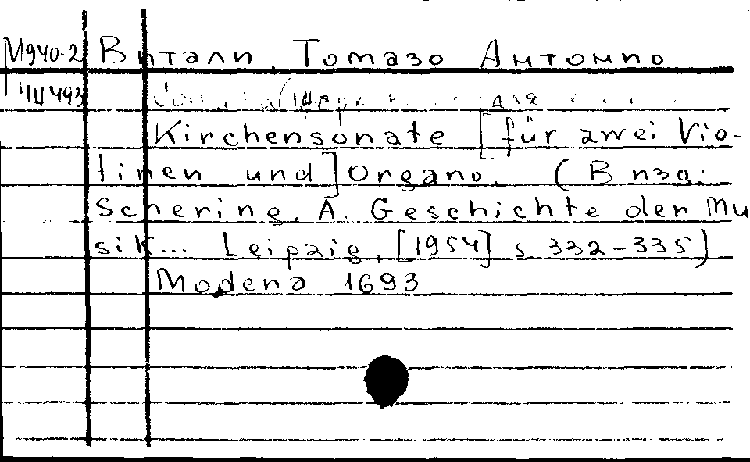 М940-2 Витали, Томазо Антонио
Ш493
для
Kirchensonate [für zwei Vio-
linen und] Organo. (В изд.:
Schering, A. Geschichte der Mu
sik... Leipzig, [1954] s 332-335)
Modena 1693